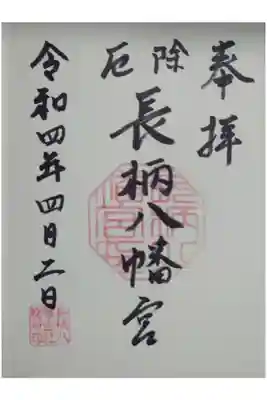 奉拝
厄除
長柄八幡宮
令和四年四月二日